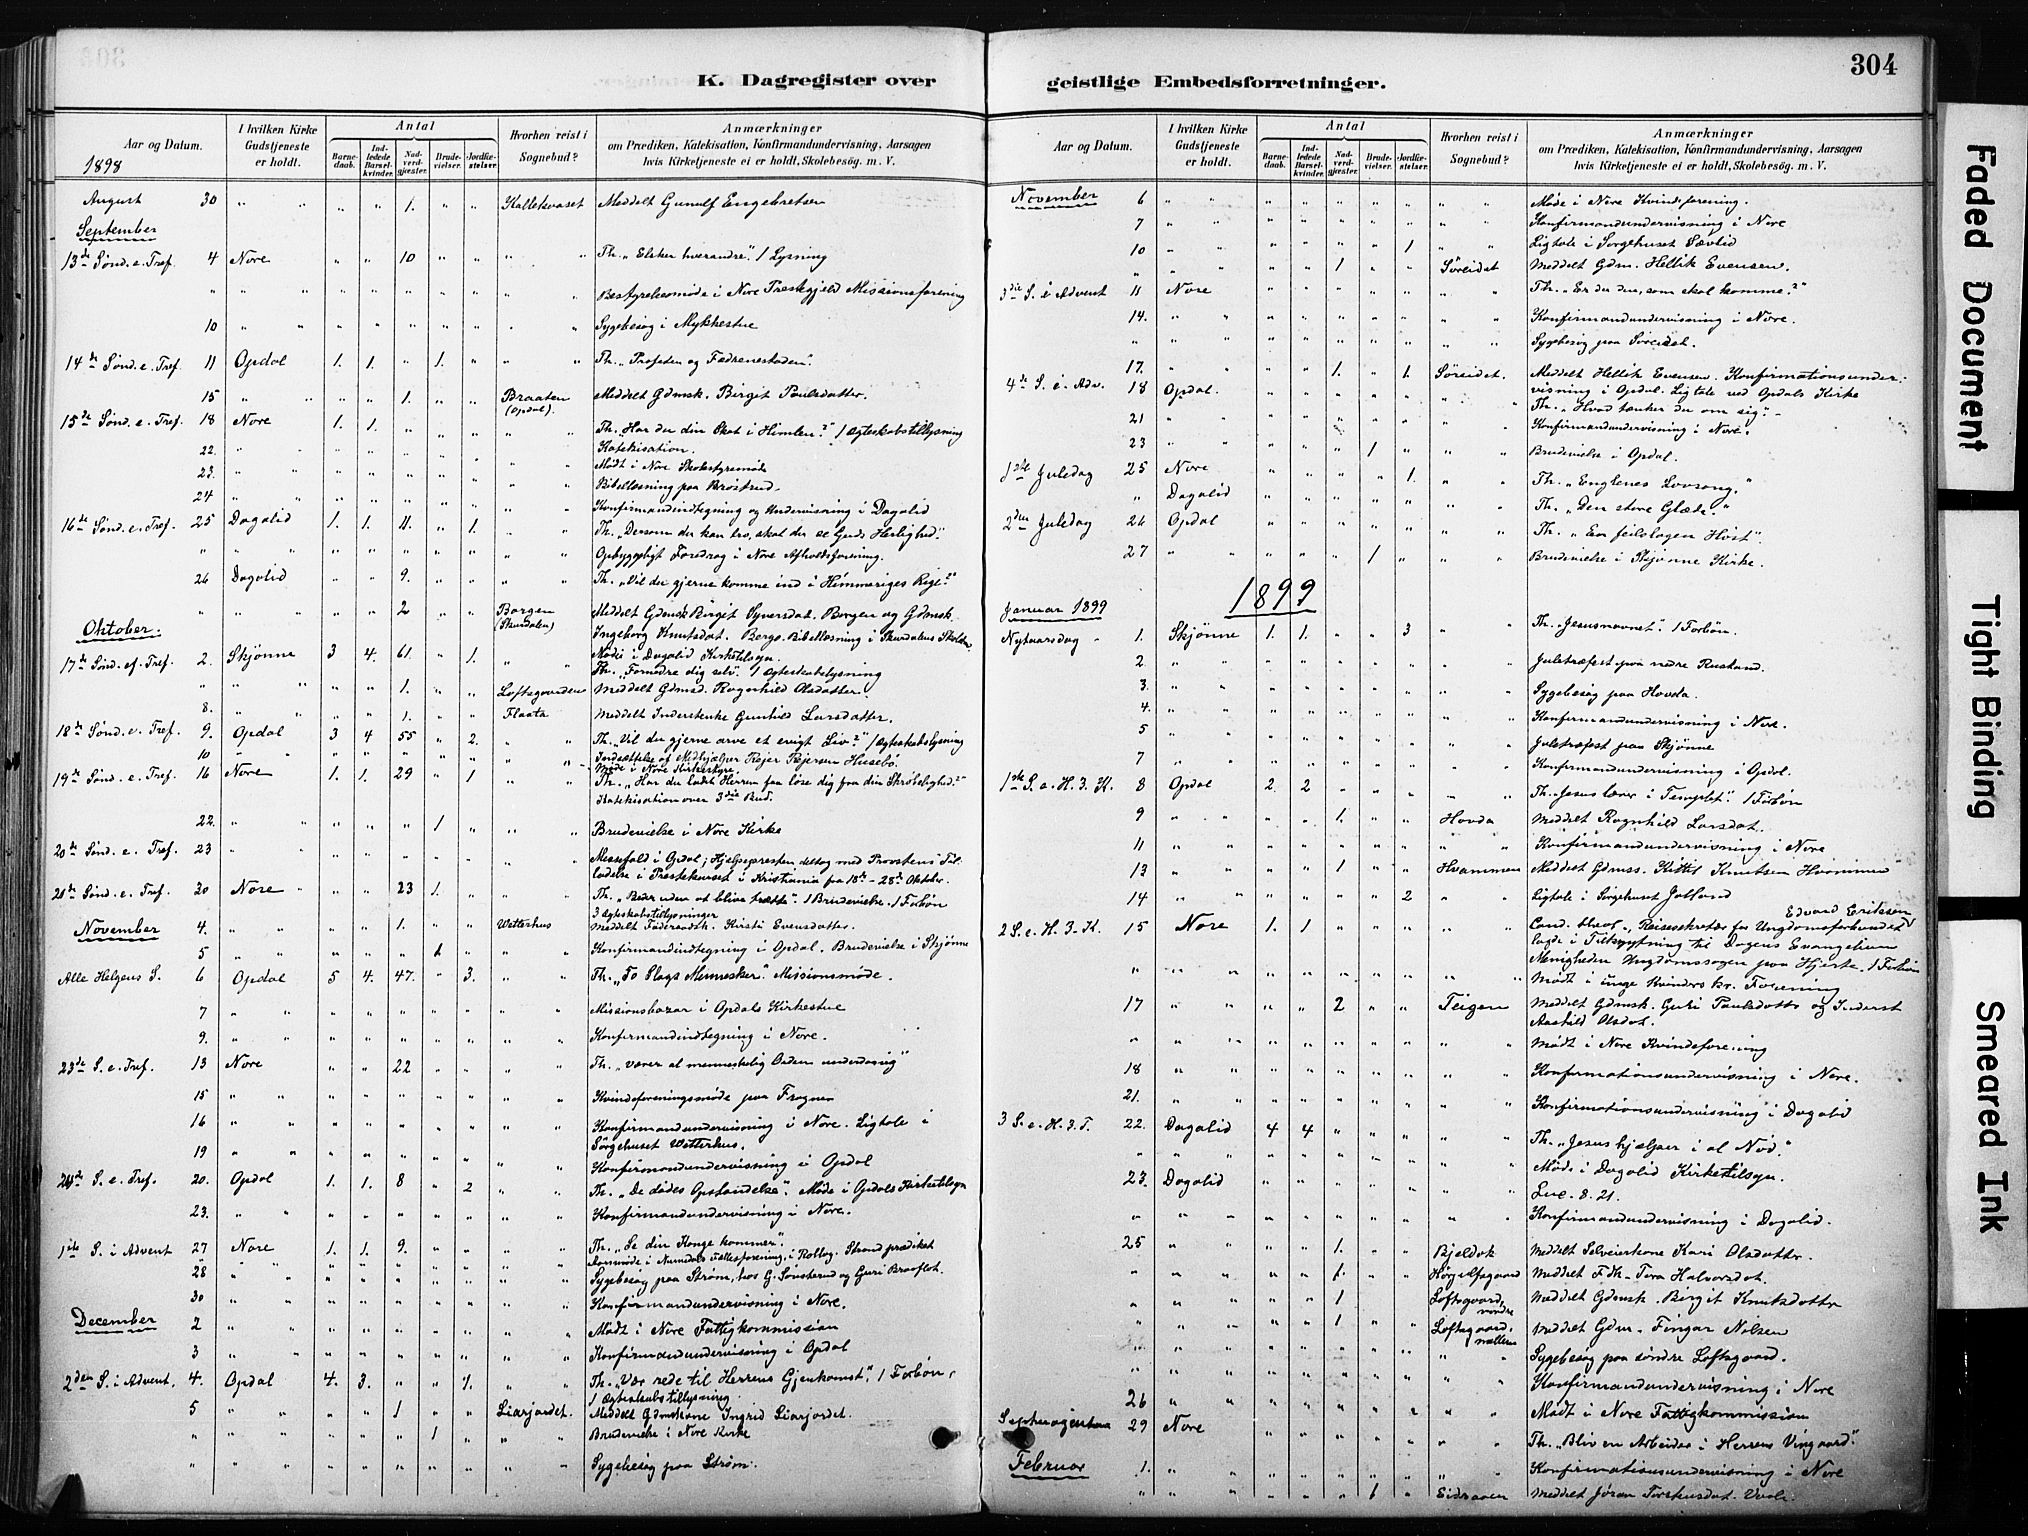 304
K. Dagregister over
geistlige Embedsforretninger.
Aar og Datum.
1898
I hvilken Kirke Gudstjeneste er holdt.
Antal
Barnedaab.
Indledede Barselkvinder.
Nadverdgjæster.
Brudevielser.
Jordfæstelser.
Hvorhen reist i Sognebud?
Anmærkninger
om Prædiken, Katekisation, Konfirmandundervisning, Aarsagen
hvis Kirketjeneste ei er holdt, Skolebesøg. m. V.
August 30 " " " " 1. " " Kallekvaset Meddelt Gunulf Engebretsen
September
13de Sønd. e. Tref. 4 Nore " " 10 " " " " Th. „Elsker hverandre". / Lysning
" " " Bestyrelsesmøde i Nore Prestegjeld Missionsforening
10 " " Sygebesøg i Mykkestue
14de Sønd. e. Tref. 11 Opdal 1. 1. " 1. " " " Th. „Profeten og Fædrenestaden".
15 " " " " 1. " " Braaten (Opdal). Meddelt Gdmsk. Birgit Paulsdatter.
15de Sønd. e. Tref. 18 Nore 1. 1. " " " " " Th. „Har du din Skat i Himlen?" / Ægteskabstillysning
Katekisation.
22. " " Mødt i Nore Skolestyremøde
23. " " Bibellæsning paa Brøstrud.
24 " " Konfirmandindtegning og Undervisning i Dagalid
16de Sønd. e. Tref. 25 Dagalid 1. 1. 11. " 1. " " Th. „Dersom du kan tro, skal du se Guds Herlighed".
" " " Opbyggeligt Foredrag i Nore Afholdsforening.
26 Dagalid " " 9. " " " " Th. „Vil du gjerne komme ind i Himmeriges Rige?"
" " " " " 2 " " Borgen (Skurdalen) Meddelt Gdmsk Birgit Syversdat. Borgen og Gdmsk.
Oktober.
Ingeborg Knutsdat. Berge. Bibellæsning i Skurdalens Skole
Møde i Dagalid Kirketilsyn.
17de Sønd. ef. Tref. 2. Skjønne 3 4. 61. " 1. " " Th. „Fornedre dig selv". / Ægteskabslysning
" " " " " 1. " " Loftsgaarden Meddelt Gdmsd. Ragnhild Olsdatter.
8. " " " " 1. " " Flaata Meddelt Inderstenke Gunhild Larsdatter.
18de Sønd. e. Tref. 9. Opdal 3 4 55 " 2. " " Th. „Vil du gjerne arve et evigt Liv?" / Ægteskabslysning
Indsættelse af Medhjælper
10 " " Møde i Nore Kirkestyre.
19de Sønd. e. Tref. 16 Nore 1. 1. 29 " 1 " " Th. „Har du ladt Herren faa løse dig fra din Skrøbelighed?"
Katekisation over 3die Bud.
22. " " " " " 1 " " " Brudevielse i Nore Kirke
20de Sønd. e. Tref. 23 " " Messefald i Opdal; Hjelpepresten deltog med Provstens Til-
ladelse i Prestekurset i Kristiania fra 18de - 28de Oktober.
21de Sønd. e. Tref. 30 Nore " " 23 1. " " " Th. „Beder uden at blive trætte". 1 Brudevielse. 1 Forbøn
3 Ægteskabstillysninger
November 4. " " " " 1. " " Wetterhus Meddelt Føderaadsk. Kirsti Evensdatter.
5 " " " " " 1 " " " Konfirmandindtegning i Opdal. Brudevielse i Skjønne
Alle Helgens S. 6 Opdal 5 4. 47. " 3. " " Th. „To Slags Mennesker." Missionsmøde.
7 " " Missionsbazar i Opdals Kirkestue
9. " " Konfirmandindtegning i Nore.
23de S. e. Tref. 13 Nore " " 22 " " " " Th. „værer al menneskelig Orden underdanig"
15 " " Kvindeforeningsmøde paa Frogner
16 " " Konfirmandundervisning i Nore. Ligtale i
Sørgehuset Wetterhus.
19 " " Konfirmandundervisning i Opdal
24de S. e. Tref. 20. Opdal 1. 1. 8 " 2 " " Th. „De dødes Opstandelse". Møde i Opdals Kirketilsyn
23. " " Konfirmandundervisning i Nore.
1ste S. i Advent 27 Nore 1. 1. 9. " " " " Th. „Se din Konge kommer".
Aarsmøde i Numedals Fællesforening, i Rollag. Strand prædiket
28 " " Sygebesøg paa Strøm, hos G. Sønsterud og Guri Braaflot.
30 " " Konfirmandundervisning i Nore.
December 2 " " Mødt i Nore Fattigkommission
3 " " Konfirmandundervisning i Opdal
2den S. i Advent. 4. Opdal 4. 3. " " 1. " " Th. „Vær rede til Herrens Gjenkomst", 1 Forbøn,
1 Ægteskabstillysning.
5 " " " " 1 " " Liarjordet. Meddelt Gdmskone Ingrid Liarjordet.
" " " " " " 1 " " " Brudevielse i Nore Kirke
" " " Sygebesøg paa Strøm.
Aar og Datum.
I hvilken Kirke Gudstjeneste er holdt.
Antal
Barnedaab.
Indledede Barselkvinder.
Nadverdgjæster.
Brudevielser.
Jordfæstelser.
Hvorhen reist i Sognebud?
Anmærkninger
om Prædiken, Katekisation, Konfirmandundervisning, Aarsagen
hvis Kirketjeneste ei er holdt, Skolebesøg. m. V.
November 6 " " Møde i Nore Kvindeforening.
7 " " Konfirmandundervisning i Nore
10 " " " " " " 1 " " Ligtale i Sørgehuset Sævlid
" " " " " 1 " " Søreidet Meddelt Gdm. Hellik Evensen.
3die S. i Advent 11 Nore Th. „Er du den, som skal komme?"
14. " " Konfirmandundervisning i Nore.
" " " Sygebesøg paa Søreidet.
17. " " " " 1. " 1. Søreidet. Meddelt Hellik Evensen. Konfirmationsunder-
visning i Opdal. Ligtale ved Opdals Kirke
4de S. i Adv. 18 Opdal. Th. „Hvad tænker du om sig"
21 " Konfirmandundervisning i Nore.
23 " " " " 1 " " " Brudevielse i Opdal.
1ste Juledag 25 Nore " " " " 1. " " Th. „Englenes Lovsang."
" Dagalid Th. „Den store Glæde."
2den Juledag 26 Opdal Th. „En feilslagen Høst".
27 " " " " " 1 " " " Brudevielse i Skjønne Kirke.
1899
Januar 1899
Nytaarsdag 1. Skjønne 1. 1. " " 3 " " Th. „Jesusnavnet". 1 Forbøn.
2. " " Juletræfest paa nedre Rustand.
3. " " Sygebesøg paa Hovda.
4. " " Konfirmandundervisning i Nore.
5 " " Juletræfest paa Skjønne
7 " " Konfirmandundervisning i Opdal.
1ste S. e. H. 3. K. 8 Opdal 2. 2 " " " " " Th. „Jesus lærer i Templet". 1 Forbøn
9 " " " " 1. " " Hovda Meddelt Ragnhild Larsdat.
11 " " Konfirmandundervisning i Nore
13 " " " " 1 " " Hvammen Meddelt Gdmss. Kittil Knutsen Hvammen
14 " " " " " " 2 " " Ligtale i Sørgehuset Jalland
Edvard Eriksen
2 S. e. H. 3. K. 15 Nore 1. 1 " " " " Cand. theol., Reisesekretær for Ungdomsforbundet
lagde i Tilknytning til Dagens Evangelium
Menigheden Ungdomssagen paa Hjerte. 1 Forbøn
" " " Mødt i unge Kvinders kr. Forening
17 " " " " 2 " " Teigen Meddelt Gdmsk. Guri Paulsdatter og Inderst
Aashild Olsdat.
Mødt i Nore Kvindeforening
18 " " Konfirmationsundervisning i Nore.
21. " " Konfirmationsundervisning i Dagalid
3 S. e. H. 3. T. 22. Dagalid 4 4 " " " " " Th. „Jesus hjælper i al Nød."
" " " Møde i Dagalid Kirketilsyn.
23. Dagalid Luc. 8. 21.
" " " Konfirmandundervisning i Dagalid.
25 " " " " 1. " " Bjeldok Meddelt Selveierkone Kari Olsdatter.
" " " " " 1. " " Meddelt Fdk. Tora Halvorsdat.
" " " " " 1 " " Loftsgaard, nørdre Meddelt Gdmsk. Birgit Knutsdatter
" " " " " 1 " " Loftsgaard, mellem Meddelt Gdm. Fingar Nilsen
" " " Sygebesøg paa søndre Loftsgaard.
" " " Konfirmandundervisning i Nore
26 " " Mødt i Nore Fattigkommission
Septuagesima 29 Nore Th. „Bliv en Arbeider i Herrens Vingaard".
Februar 1. " " Konfirmationsundervisning i Nore
" " " " " 1 " Eidsaaen Meddelt Jøran Torstensdat.
Faded Document
Tight Binding
Smeared Ink